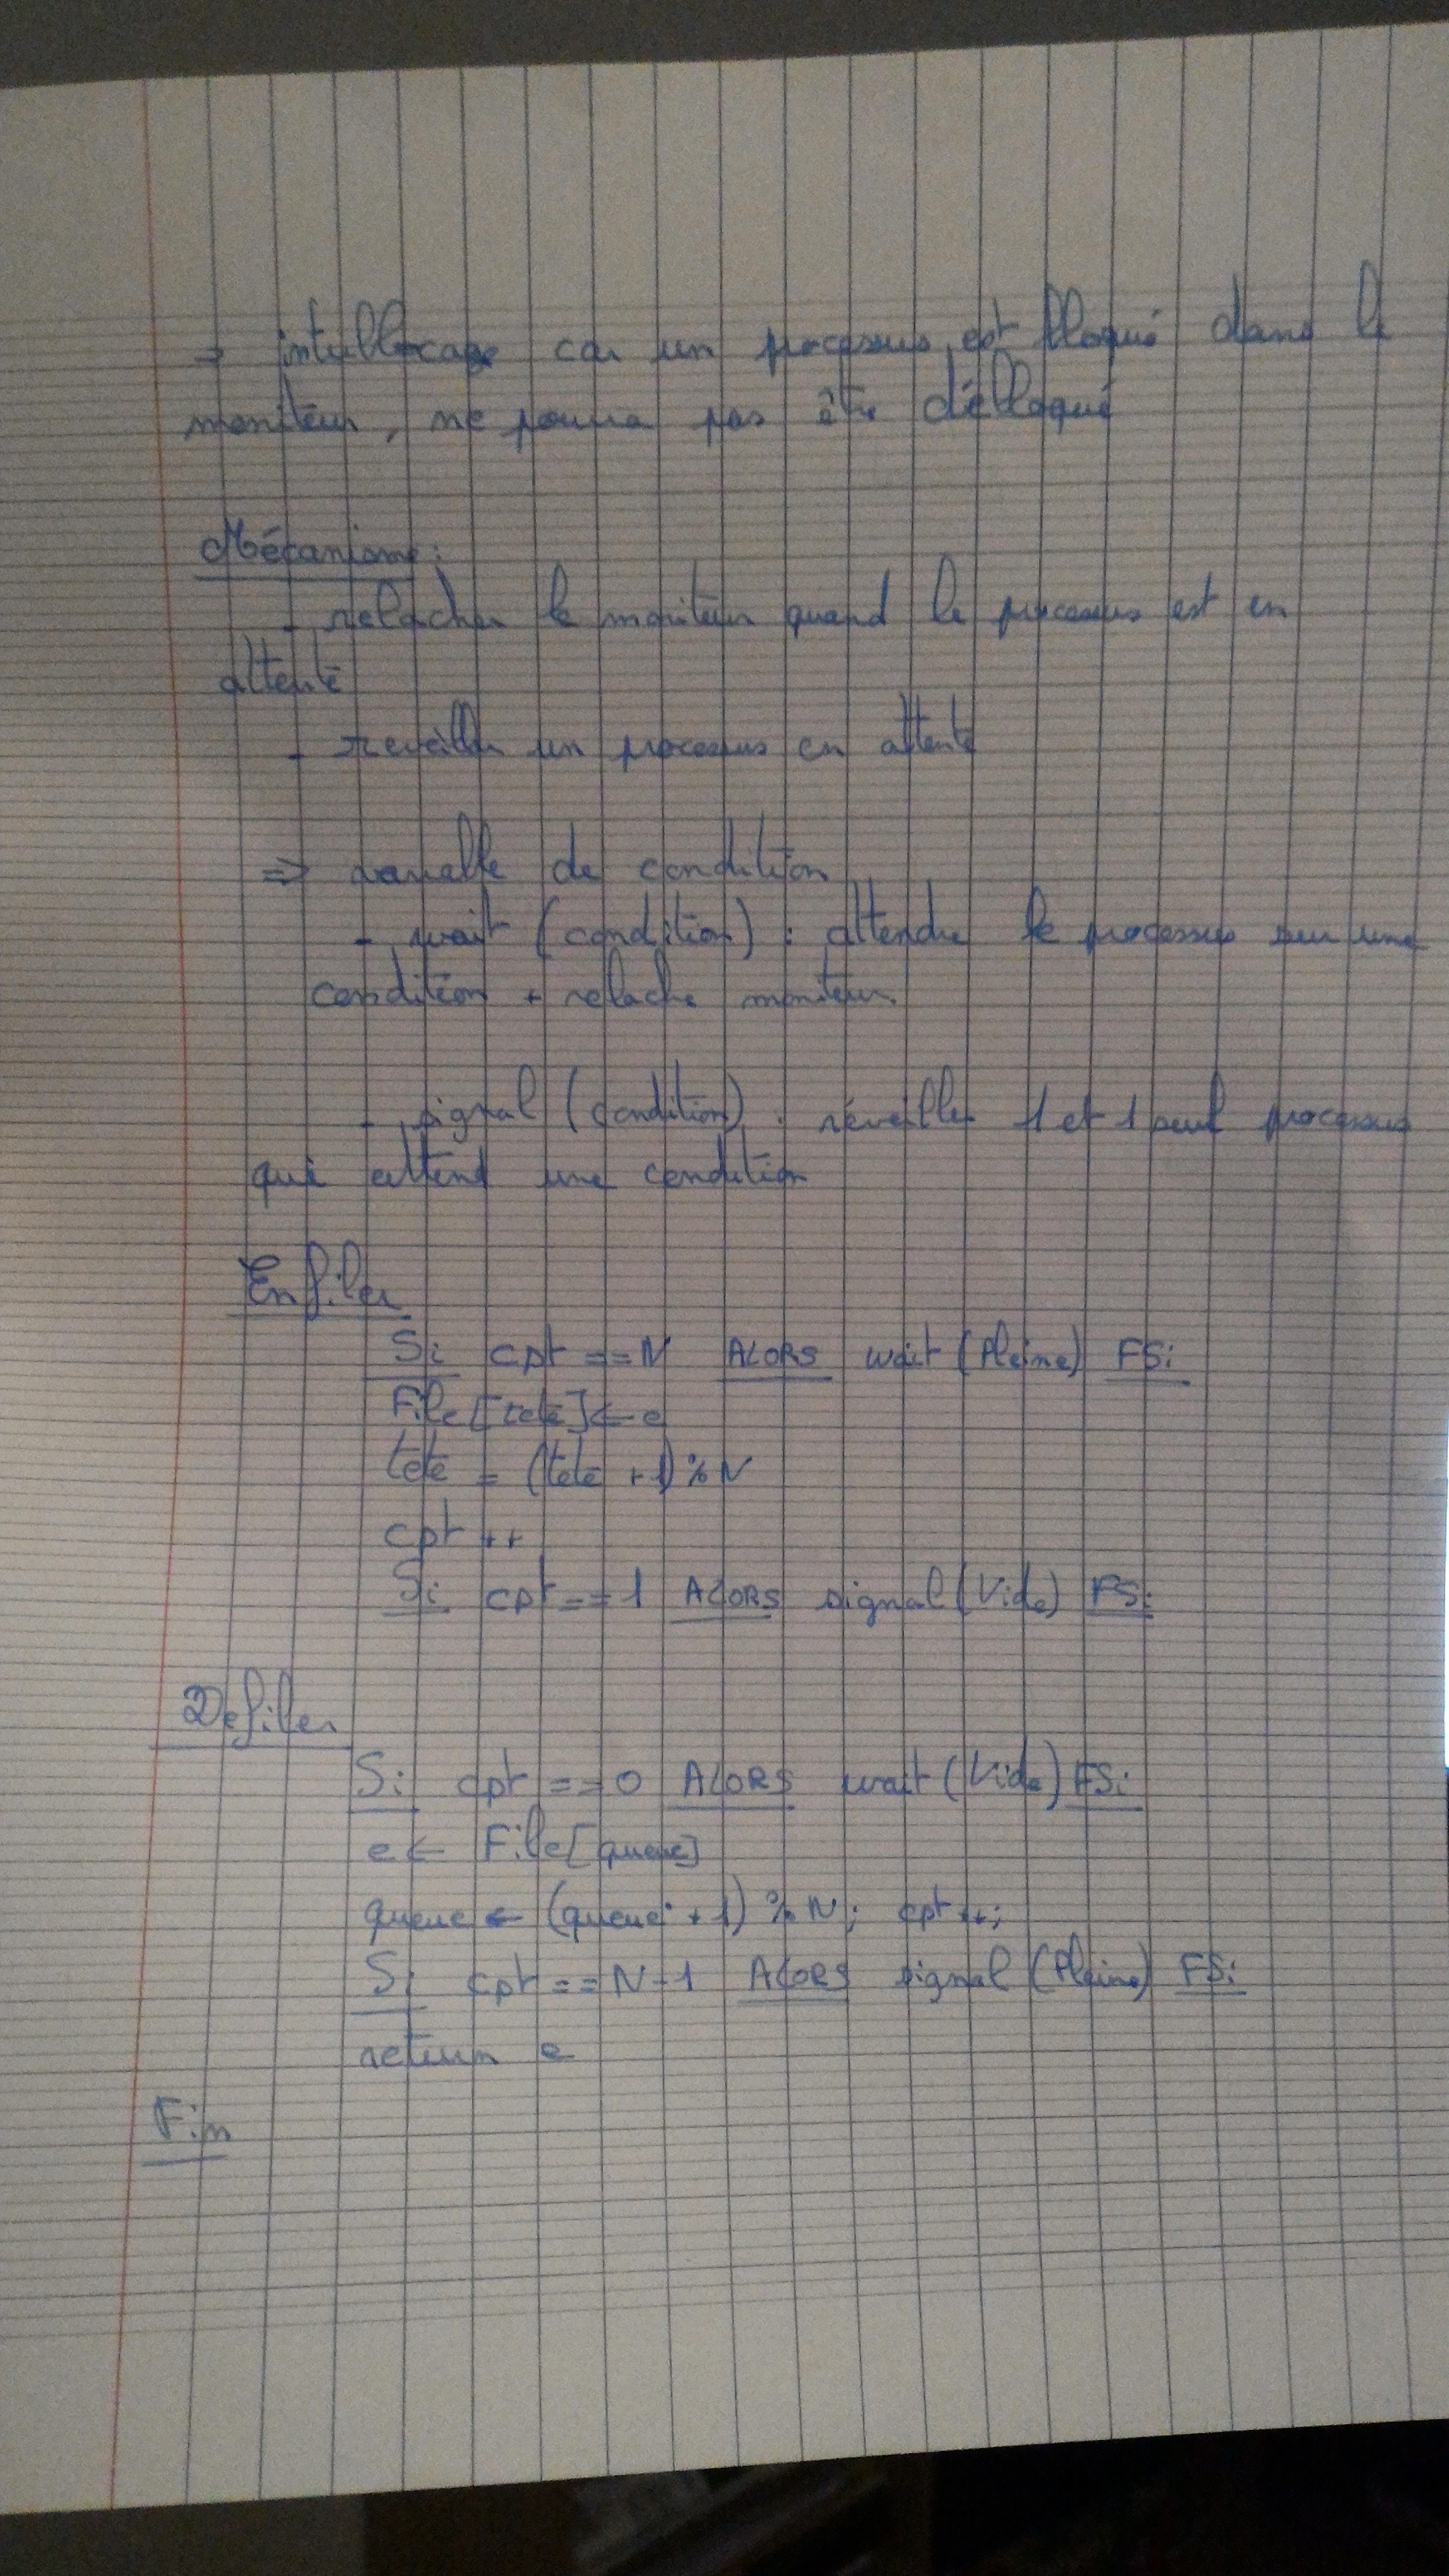 → interblocage car un processus est bloqué dans le
moniteur, ne pourra pas être débloqué
Mécanisme:
- relacher le moniteur quand le processus est en
attente
- reveiller un processus en attente
=> variable de condition
- wait (condition) : attendre le processus sur une
condition + relache moniteur.
- signal (condition) : réveiller 1 et 1 seul processus
qui attend une condition
Enfiler
Si cpt == N ALORS wait (Pleine) FSi
File [tete] ← e
tete = (tete + 1) % N
cpt ++
Si cpt == 1 ALORS signal (Vide) FSi
Defiler
Si cpt == 0 ALORS wait (Vide) FSi
e ← File [queue]
queue ← (queue + 1) % N; cpt++;
Si cpt == N-1 ALORS signal (Pleine) FSi
return e
Fin